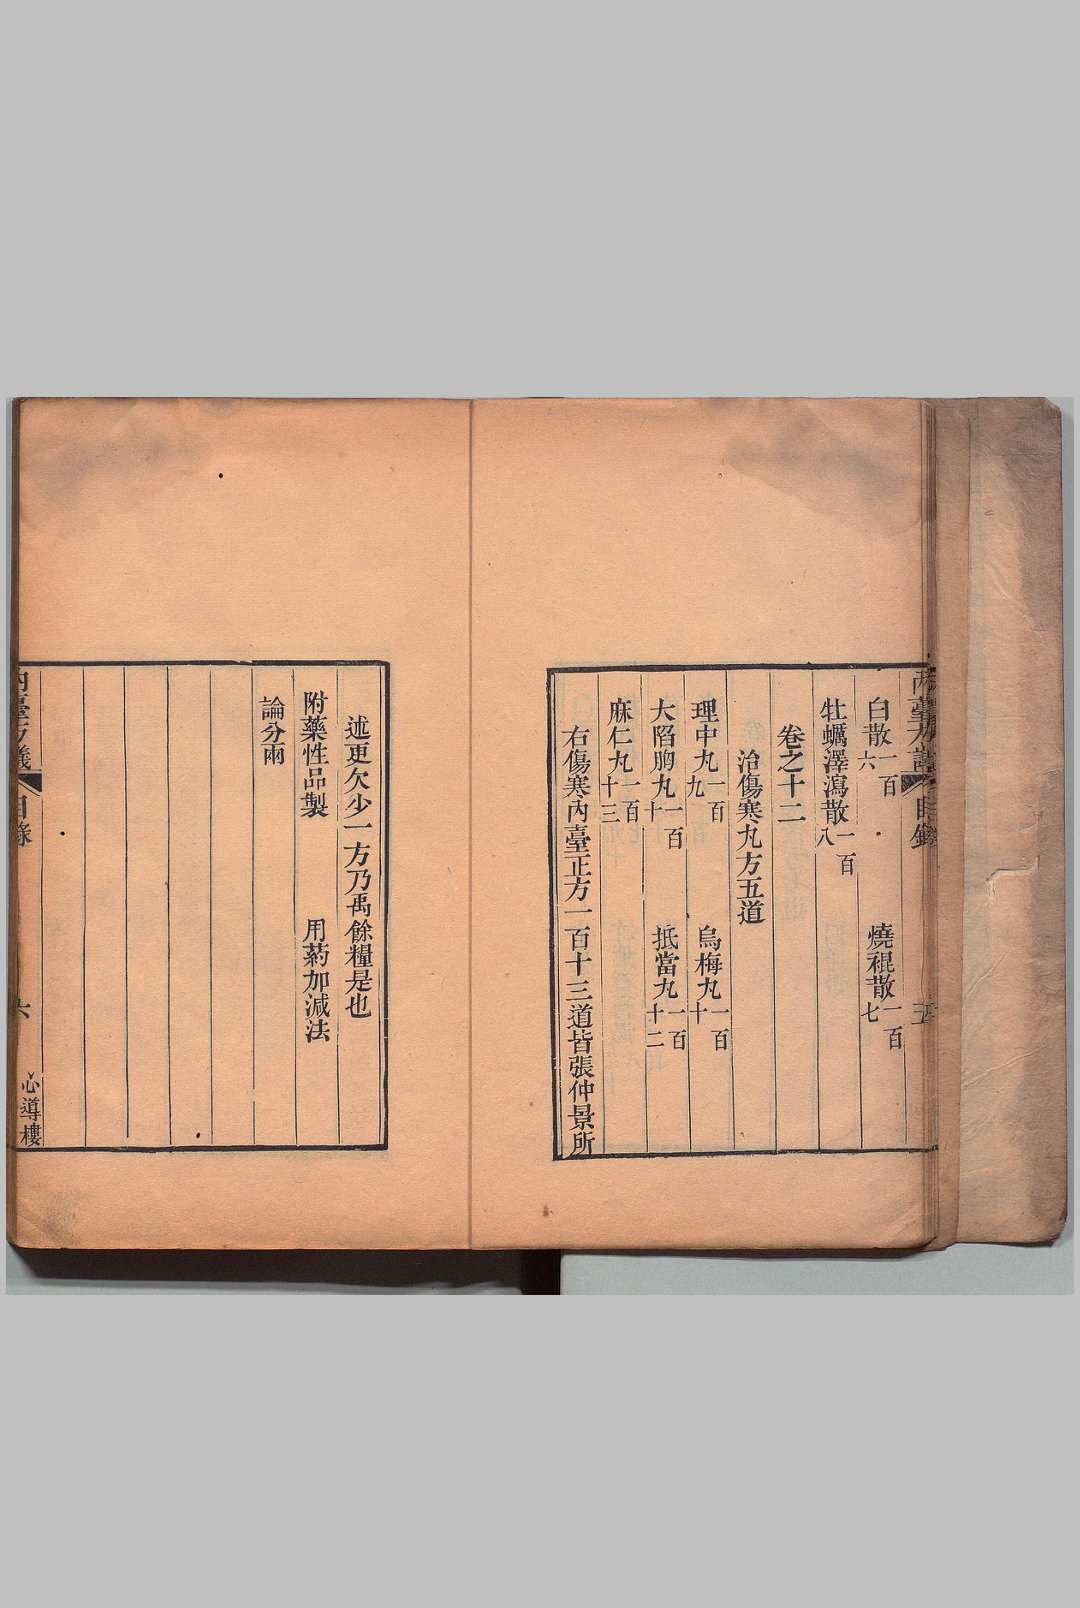 白散一百六　燒裩散一百七
牡蠣澤瀉散一百八
卷之十二
治傷寒丸方五道
理中丸一百九　烏梅丸一百十
大陷胸丸一百十　抵當丸一百十二
麻仁丸一百十三
右傷寒內臺正方一百十三道皆張仲景所
述更欠少一方乃禹餘糧是也
附藥性品製　用藥加減法
論分兩
內臺方議　目錄　六　心導樓